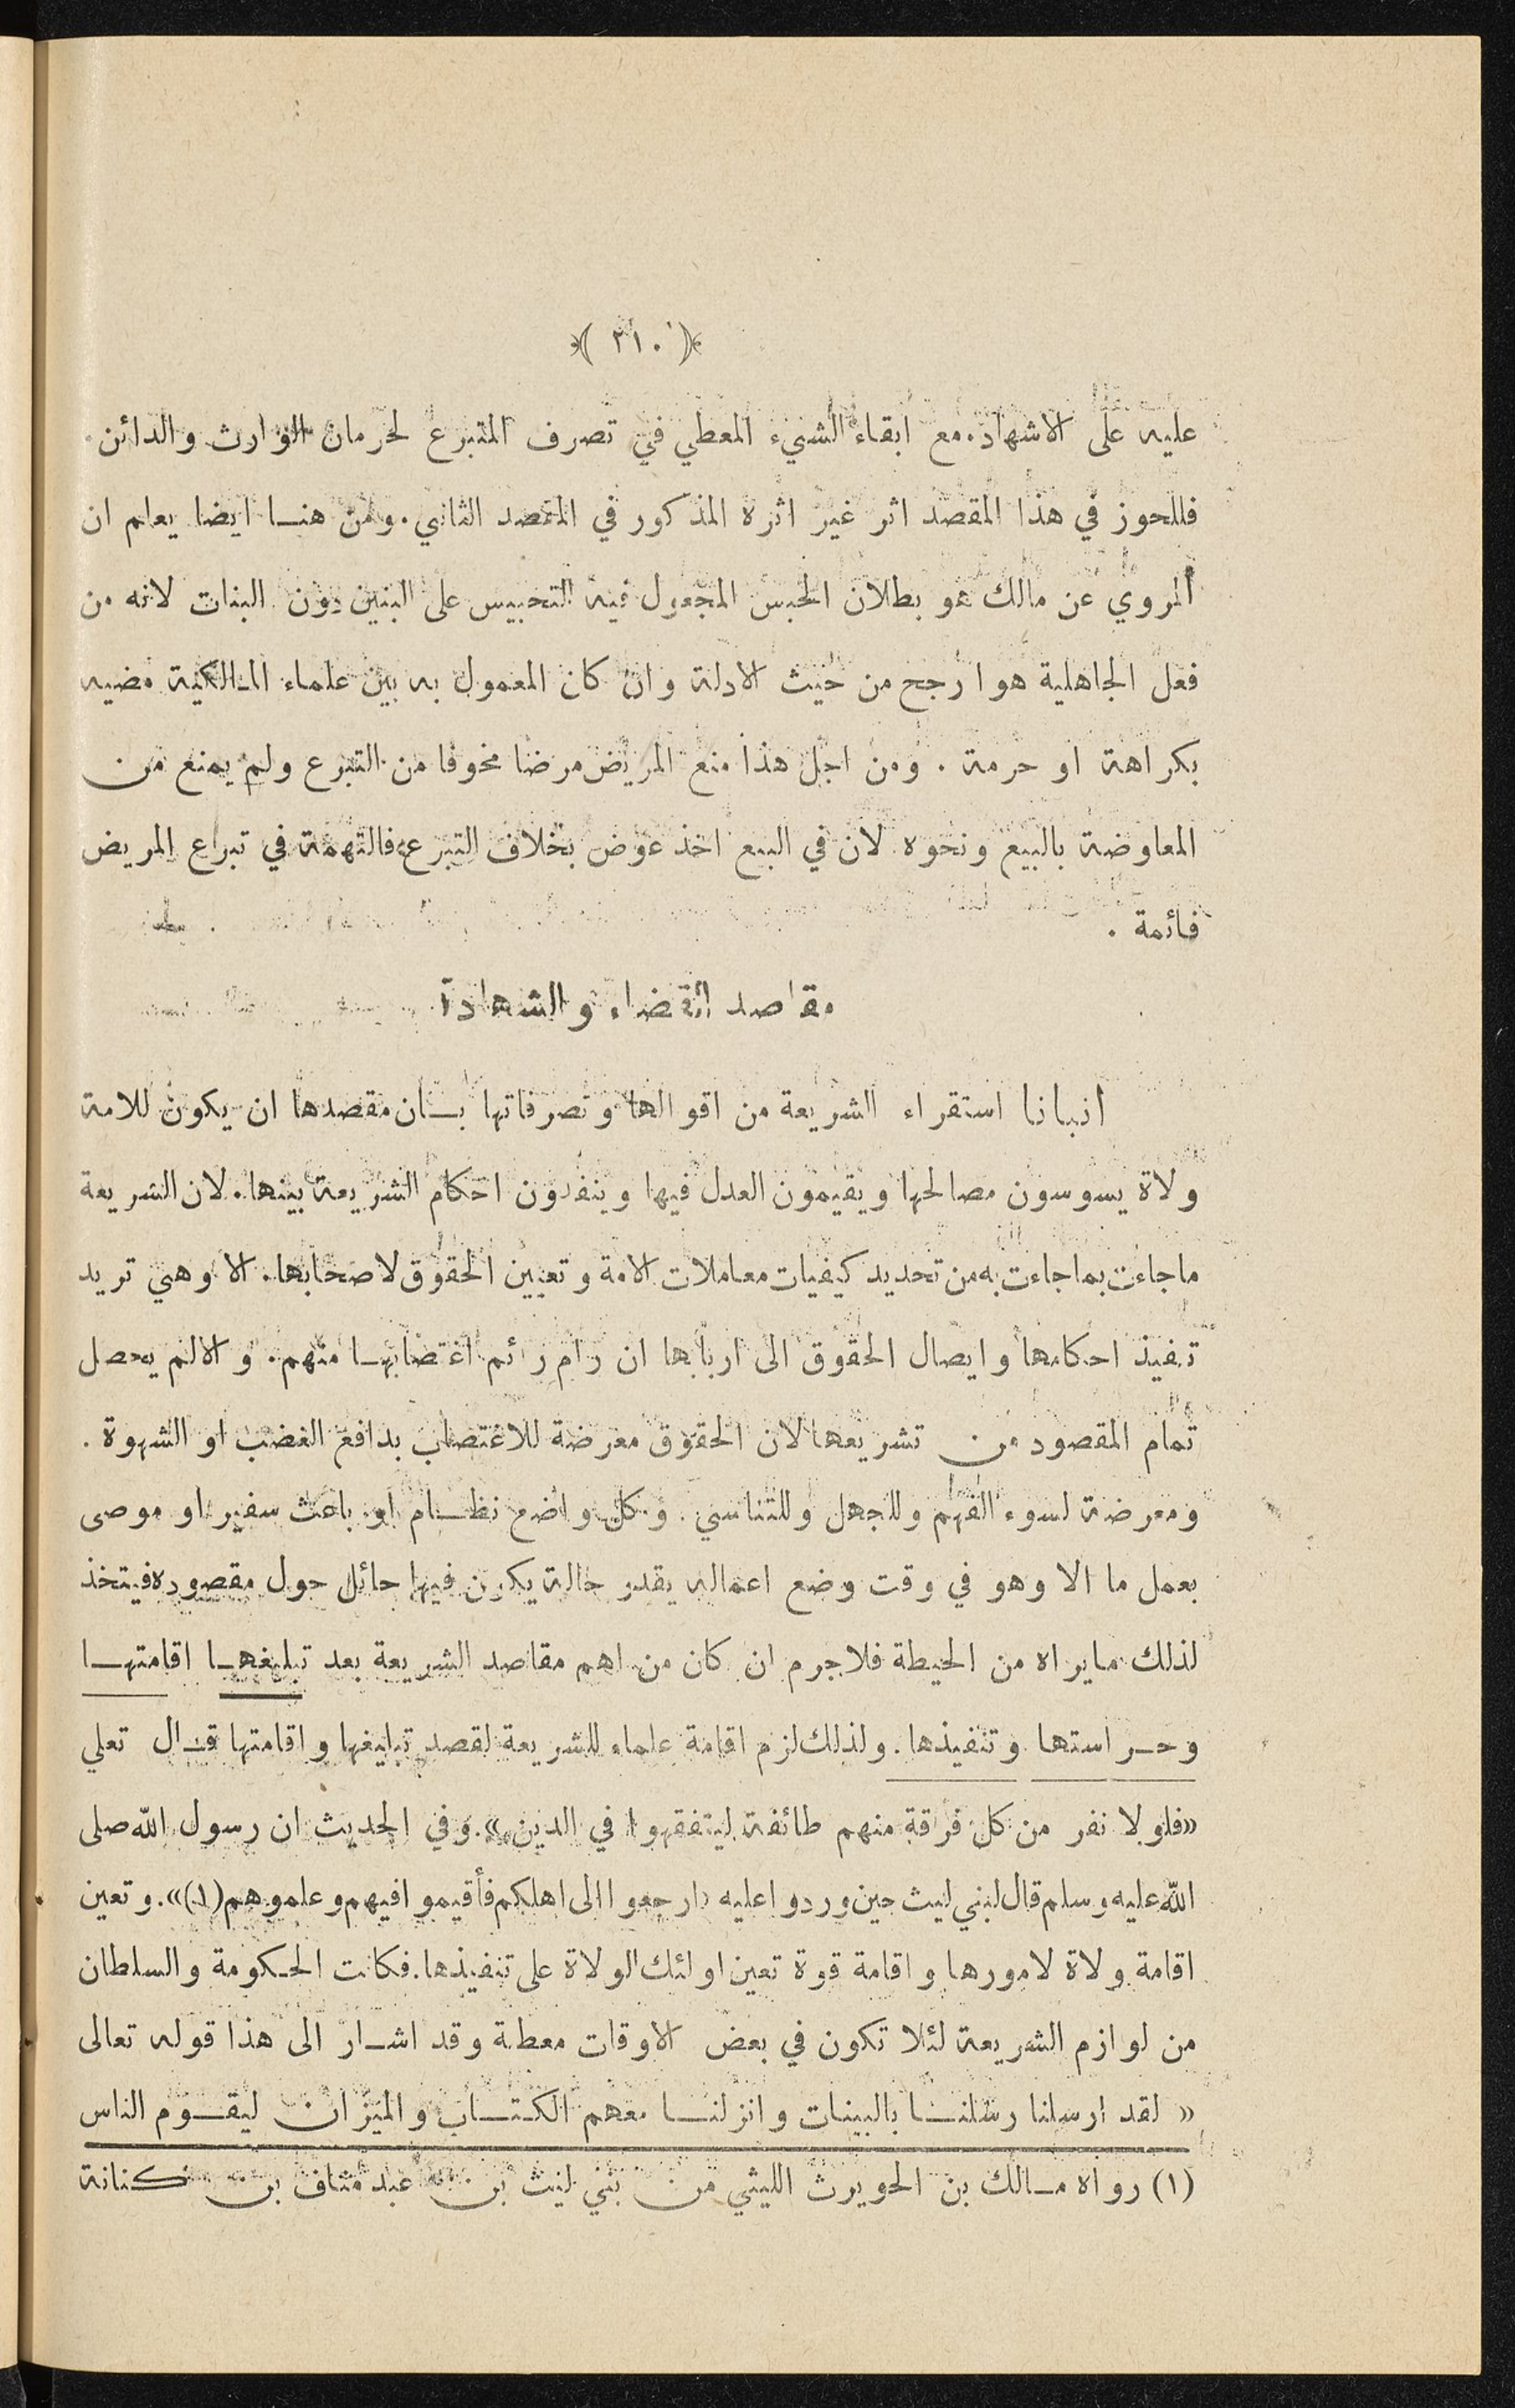 ﴿( ٢١٠ )﴾
عليه على الاشهاد. مع ابقاء الشيء المعطي في تصرف المتبرع لحرمان الوارث والدائن.
فللحوز في هذا المقصد اثر غير اثره المذكور في المقصد الثاني. ومن هنا ايضا يعلم ان
المروي عن مالك هو بطلان الحبس المجعول فيه التحبيس على البنين دون البنات لانه من
فعل الجاهلية هو ارجح من حيث الادلة وان كان المعمول به بين علماء المالكية مضيه
بكراهة او حرمة . ومن اجل هذا منع المريض مرضا مخوفا من التبرع ولم يمنع من
المعاوضة بالبيع ونحوه لان في البيع اخذ عوض بخلاف التبرع فالتهمة في تبراع المريض
قائمة .
مقاصد القضاء والشهادة
انبانا استقراء الشريعة من اقوالها وتصرفاتها بان مقصدها ان يكون للامة
ولاة يسوسون مصالحها ويقيمون العدل فيها وينفذون احكام الشريعة بينها. لان الشريعة
ما جاءت بما جاءت به من تحديد كيفيات معاملات الامة وتعيين الحقوق لاصحابها. الا وهي تريد
تنفيذ احكامها وايصال الحقوق الى اربابها ان رام رائم اغتصابها منهم. والا لم يحصل
تمام المقصود من تشريعها لان الحقوق معرضة للاغتصاب بدافع الغضب او الشهوة .
ومعرضة لسوء الفهم وللجهل وللتناسي . وكل واضع نظام او باعث سفير او موصى
بعمل ما الا وهو في وقت وضع اعماله يقدر حالة يكون فيها حائل حول مقصوده فيتخذ
لذلك ما يراه من الحيطة فلا جرم ان كان من اهم مقاصد الشريعة بعد تبليغها اقامتها
وحراستها وتنفيذها. ولذلك لزم اقامة علماء للشريعة لقصد تبليغها واقامتها قال تعلي
«فلولا نفر من كل فرقة منهم طائفة ليتفقهوا في الدين». وفي الحديث ان رسول الله صلى
الله عليه وسلم قال لبني ليث حين وردوا عليه «ارجعوا الى اهلكم فأقيموا فيهم وعلموهم (١)». وتعين
اقامة ولاة لامورها واقامة قوة تعين اولئك الولاة على تنفيذها. فكانت الحكومة والسلطان
من لوازم الشريعة لئلا تكون في بعض الاوقات معطلة وقد اشار الى هذا قوله تعالى
« لقد ارسلنا رسلنا بالبينات وانزلنا معهم الكتاب والميزان ليقوم الناس
(١) رواه مالك بن الحويرث الليثي من بني ليث بن عبد مناف بن كنانة